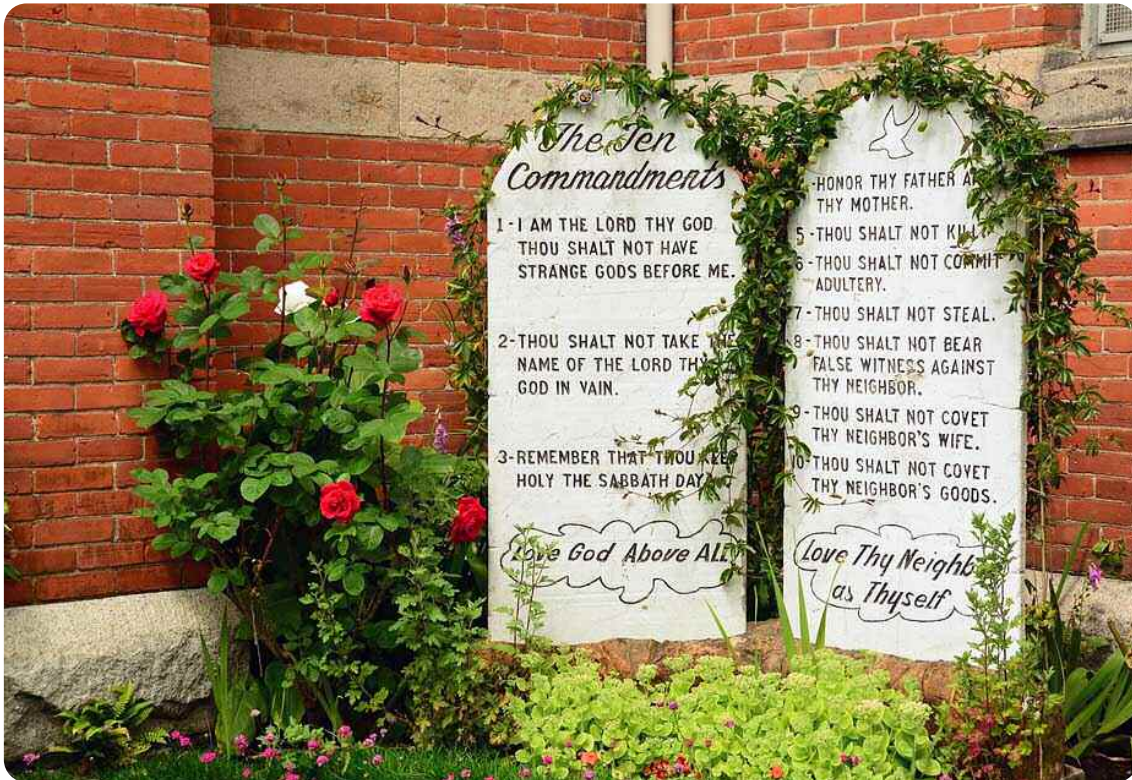 The Ten
Commandments
1-I AM THE LORD THY GOD
THOU SHALT NOT HAVE
STRANGE GODS BEFORE ME.
2-THOU SHALT NOT TAKE THE
NAME OF THE LORD THY
GOD IN VAIN.
3-REMEMBER THAT THOU KEEP
HOLY THE SABBATH DAY
Love God Above ALL
-HONOR THY FATHER
THY MOTHER.
5-THOU SHALT NOT KILL
6-THOU SHALT NOT COMMIT
ADULTERY.
7-THOU SHALT NOT STEAL.
8-THOU SHALT NOT BEAR
FALSE WITNESS AGAINST
THY NEIGHBOR.
9-THOU SHALT NOT COVET
THY NEIGHBOR'S WIFE.
10-THOU SHALT NOT COVET
THY NEIGHBOR'S GOODS.
Love Thy Neighb
as Thyself